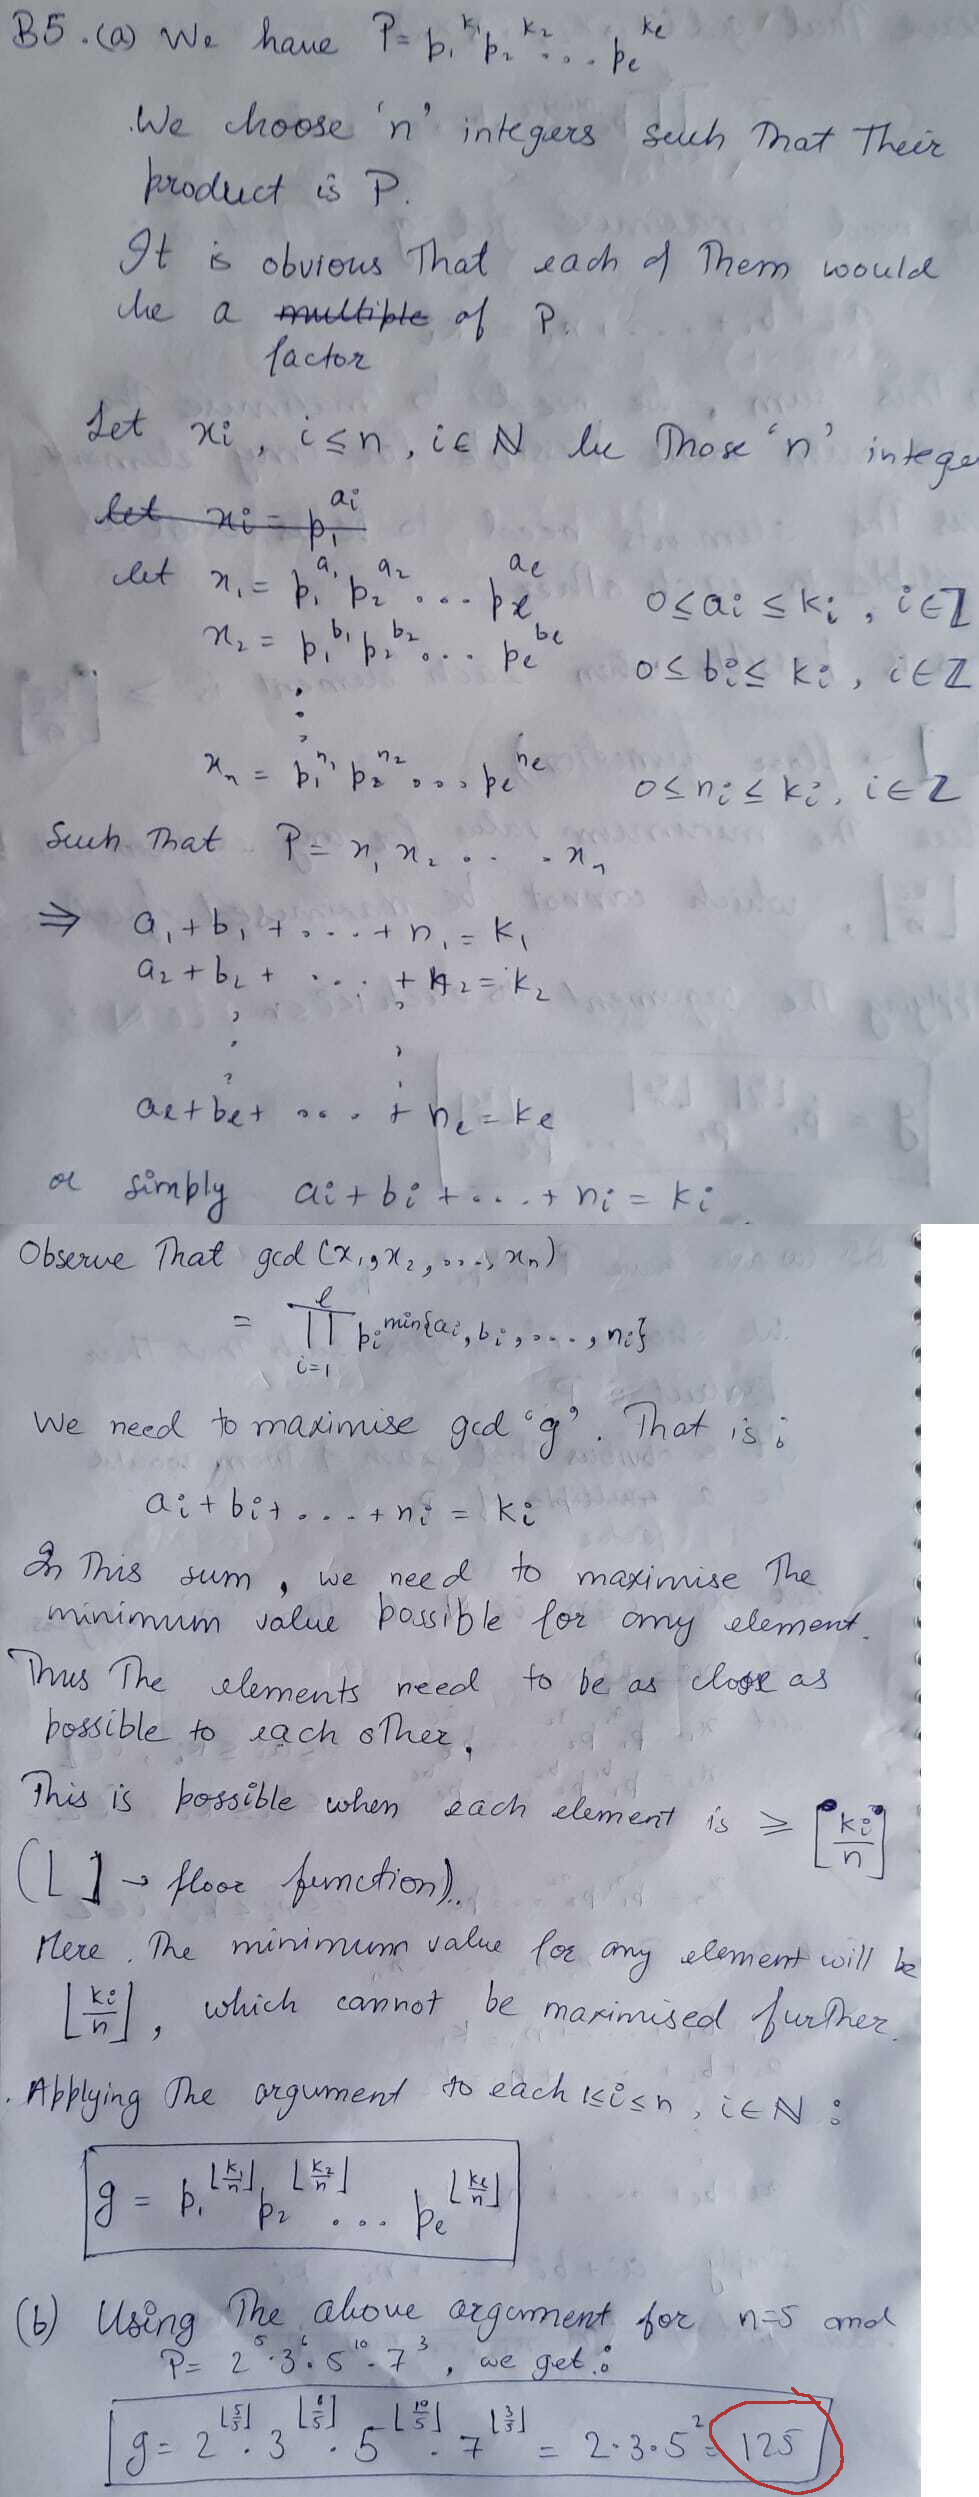 B5.(a) We have P = p₁^k₁ p₂^k₂ ... pₑ^kₑ
We choose 'n' integers such that their
product is P.
It is obvious that each of them would
be a multiple of P.
factor
Let xi, i ≤ n, i ∈ N be those 'n' intege
let xi = p₁^ai
let x₁ = p₁^a₁ p₂^a₂ ... pₑ^aₑ 0 ≤ ai ≤ ki, i ∈ Z
x₂ = p₁^b₁ p₂^b₂ ... pₑ^bₑ 0 ≤ bi ≤ ki, i ∈ Z
⋮
xₙ = p₁^n₁ p₂^n₂ ... pₑ^nₑ 0 ≤ ni ≤ ki, i ∈ Z
Such that P = x₁ x₂ ... xₙ
⇒ a₁ + b₁ + ... + n₁ = k₁
a₂ + b₂ + ... + n₂ = k₂
⋮
aₑ + bₑ + .... + nₑ = kₑ
or simply ai + bi + ... + ni = ki
Observe that gcd (x₁, x₂, ...., xₙ)
= ∏_{i=1}^{l} pi^min{ai, bi, ...., ni}
We need to maximise gcd 'g'. That is;
ai + bi + ... + ni = ki
In this sum, we need to maximise the
minimum value possible for any element.
Thus the elements need to be as close as
possible to each other.
This is possible when each element is ≥ ⌊ki/n⌋
(⌊ ⌋ → floor function).
Here. The minimum value for any element will be
⌊ki/n⌋, which cannot be maximised further.
Applying the argument to each 1≤i≤n, i ∈ N :
g = p₁^⌊k₁/n⌋ p₂^⌊k₂/n⌋ ... pₑ^⌊kₑ/n⌋
(b) Using the above argument for n=5 and
P = 2⁵·3⁶·5¹⁰·7³, we get:
g = 2^⌊5/5⌋ · 3^⌊6/5⌋ · 5^⌊10/5⌋ · 7^⌊3/5⌋ = 2·3·5² = 125